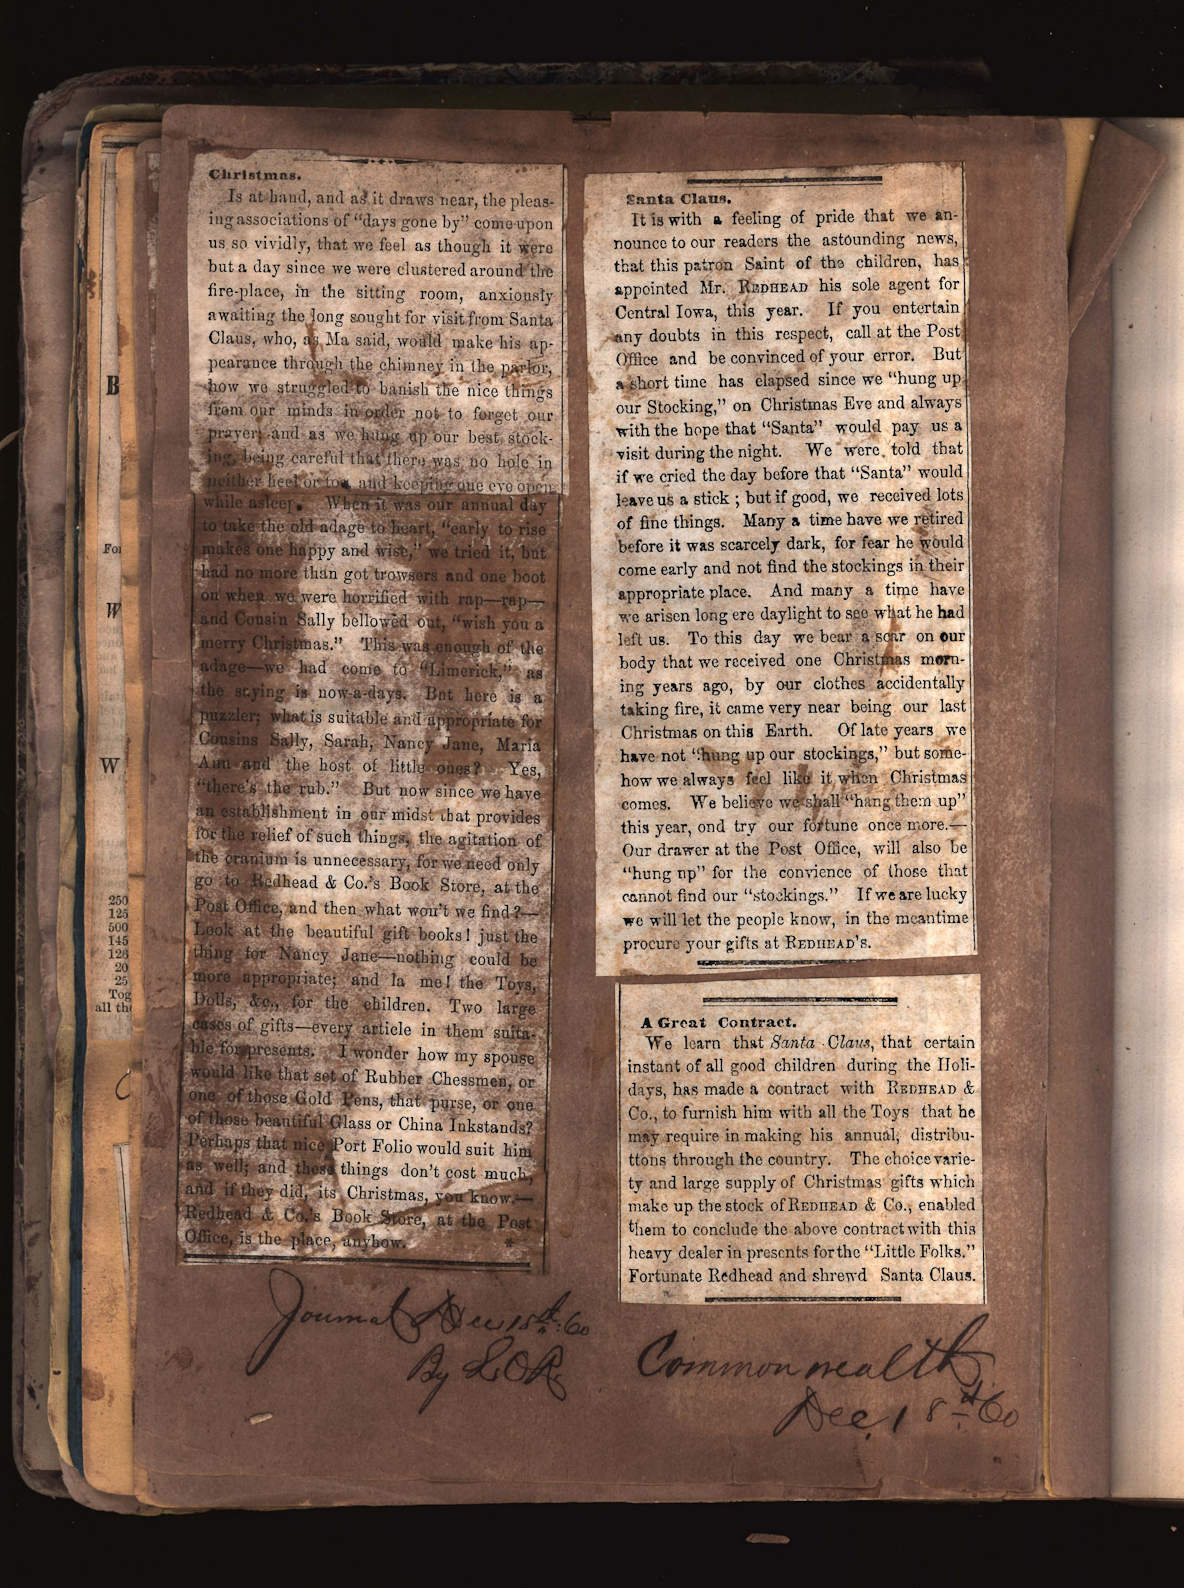 Christmas.
Is at hand, and as it draws near, the pleas-
ing associations of "days gone by" come upon
us so vividly, that we feel as though it were
but a day since we were clustered around the
fire-place, in the sitting room, anxiously
awaiting the long sought for visit from Santa
Claus, who, as Ma said, would make his ap-
pearance through the chimney in the parlor,
how we struggled to banish the nice things
from our minds in order not to forget our
prayer; and as we hung up our best stock-
ing, being careful that there was no hole in
neither heel or toe, and keeping one eye open
while asleep. When it was our annual day
to take the old adage to heart, "early to rise
makes one happy and wise," we tried it, but
had no more than got trowsers and one boot
on when we were horrified with rap—rap—
and Cousin Sally bellowed out, "wish you a
merry Christmas." This was enough of the
adage—we had come to "Limerick," as
the saying is now-a-days. But here is a
puzzler; what is suitable and appropriate for
Cousins Sally, Sarah, Nancy Jane, Maria
Ann and the host of little ones? Yes,
"there's the rub." But now since we have
an establishment in our midst that provides
for the relief of such things, the agitation of
the cranium is unnecessary, for we need only
go to Redhead & Co.'s Book Store, at the
Post Office, and then what won't we find?—
Look at the beautiful gift books! just the
thing for Nancy Jane—nothing could be
more appropriate; and la me! the Toys,
Dolls, &c., for the children. Two large
cases of gifts—every article in them suita-
ble for presents. I wonder how my spouse
would like that set of Rubber Chessmen, or
one of those Gold Pens, that purse, or one
of those beautiful Glass or China Inkstands?
Perhaps that nice Port Folio would suit him
as well; and these things don't cost much,
and if they did, its Christmas, you know.—
Redhead & Co.'s Book Store, at the Post
Office, is the place, anyhow. *
Journal Dec 18th. 60
By L.O.R.
Santa Claus.
It is with a feeling of pride that we an-
nounce to our readers the astounding news,
that this patron Saint of the children, has
appointed Mr. REDHEAD his sole agent for
Central Iowa, this year. If you entertain
any doubts in this respect, call at the Post
Office and be convinced of your error. But
a short time has elapsed since we "hung up
our Stocking," on Christmas Eve and always
with the hope that "Santa" would pay us a
visit during the night. We were told that
if we cried the day before that "Santa" would
leave us a stick ; but if good, we received lots
of fine things. Many a time have we retired
before it was scarcely dark, for fear he would
come early and not find the stockings in their
appropriate place. And many a time have
we arisen long ere daylight to see what he had
left us. To this day we bear a scar on our
body that we received one Christmas morn-
ing years ago, by our clothes accidentally
taking fire, it came very near being our last
Christmas on this Earth. Of late years we
have not "hung up our stockings," but some-
how we always feel like it when Christmas
comes. We believe we shall "hang them up"
this year, ond try our fortune once more.—
Our drawer at the Post Office, will also be
"hung np" for the convience of those that
cannot find our "stockings." If we are lucky
we will let the people know, in the meantime
procure your gifts at REDHEAD'S.
A Great Contract.
We learn that Santa Claus, that certain
instant of all good children during the Holi-
days, has made a contract with REDHEAD &
Co., to furnish him with all the Toys that he
may require in making his annual, distribu-
ttons through the country. The choice varie-
ty and large supply of Christmas gifts which
make up the stock of REDHEAD & Co., enabled
them to conclude the above contract with this
heavy dealer in presents for the "Little Folks."
Fortunate Redhead and shrewd Santa Claus.
Commonwealth
Dec. 18th 60
B
For
W
W
250
125
500
145
126
20
25
Tog
all the